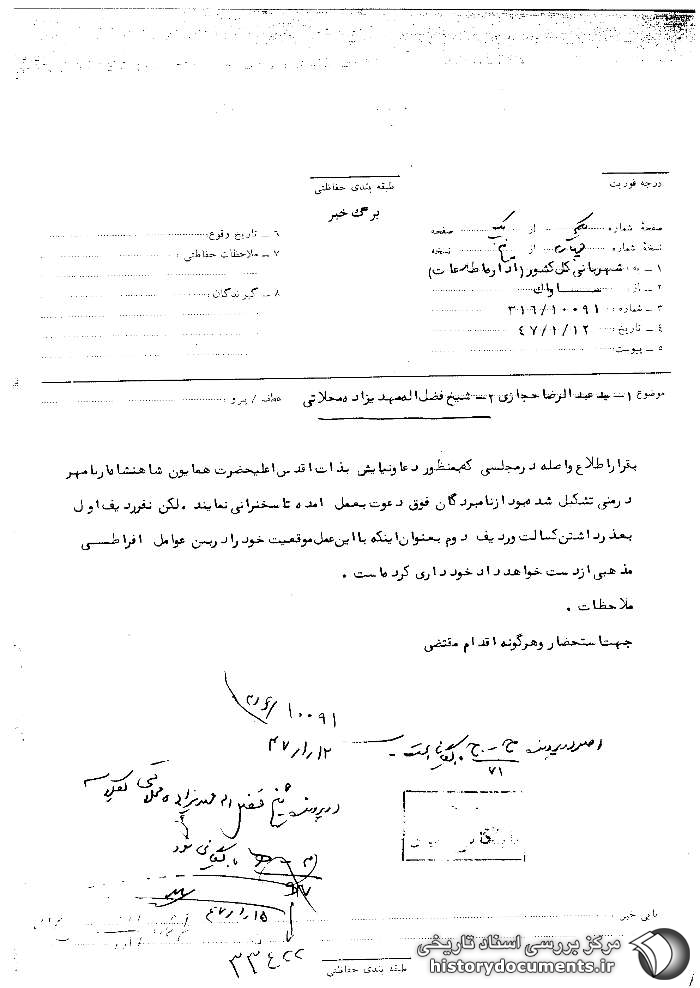 درجه فوریت
طبقه بندی حفاظتی
برگ خبر
صفحه شماره یکم از یک صفحه
نسخه شماره چهارم از پنج نسخه
۱ ــ به: شهربانی کل کشور (اداره اطلاعات)
۲ ــ از: ساواک
۳ ــ شماره: ۳۱۶/۱۰۰۹۱
۴ ــ تاریخ: ۴۷/۱/۱۲
۵ ــ پیوست:
۶ ــ تاریخ وقوع:
۷ ــ ملاحظات حفاظتی:
۸ ــ گیرندگان:
موضوع ۱ــ سید عبدالرضا حجازی ۲ــ شیخ فضل اله مهدیزاده محلاتی
عطف / پیرو:
بقرار اطلاع واصله در مجلسی که بمنظور دعا و نیایش بذات اقدس اعلیحضرت همایون شاهنشاه آریامهر
در منی تشکیل شده بود از نامبردگان فوق دعوت بعمل امده تا سخنرانی نمایند . لکن نفر ردیف اول
بعذر داشتن کسالت و ردیف دوم بعنوان اینکه با این عمل موقعیت خود را در بین عوامل افراطی
مذهبی از دست خواهد داد خودداری کرده است .
ملاحظات .
جهت استحضار و هرگونه اقدام مقتضی
۱۰۰۹۱
۴۷/۱/۱۲
اصل در پرونده ح - ج بایگانی است
۷۱
در پرونده شیخ فضل اله مهدیزاده محلاتی
بایگانی شود
۴۷/۱/۱۵
۳۳۴۲۲
بایگانی
نابی خبر
طبقه بندی حفاظتی
مرکز بررسی اسناد تاریخی
historydocuments.ir